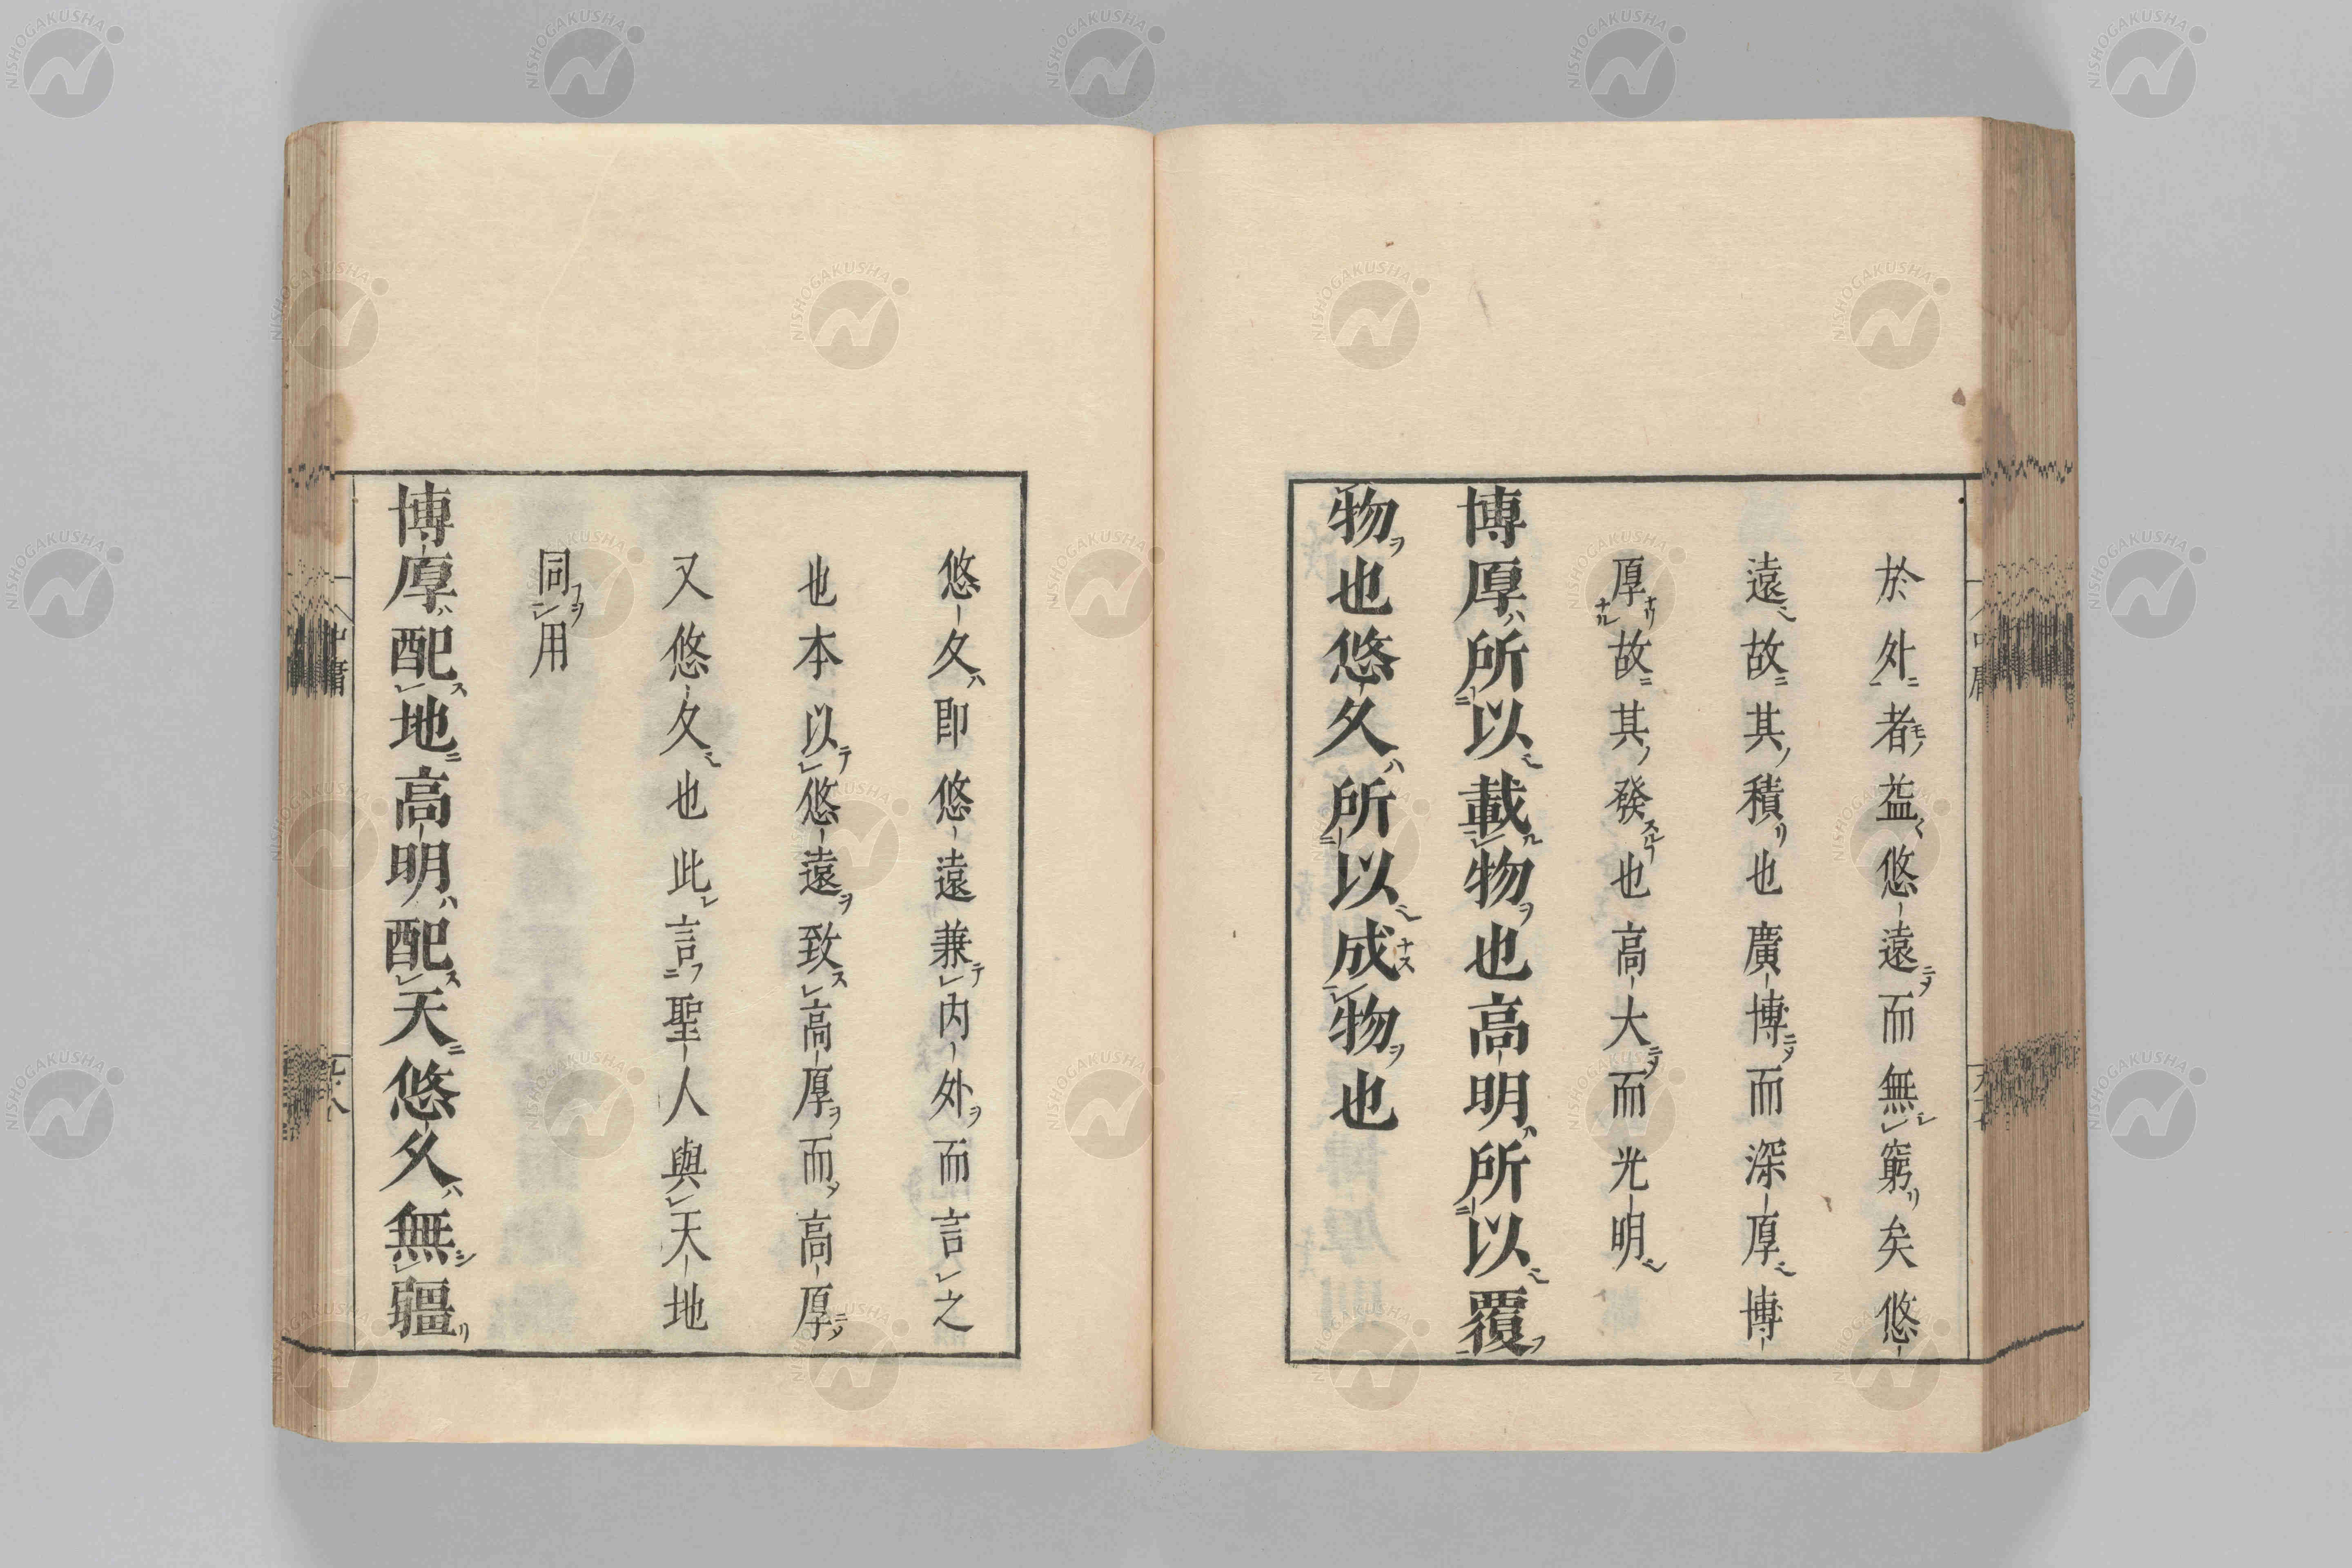 於外者益悠遠而無窮矣悠
遠故其積也廣博而深厚博
厚故其發也高大而光明
博厚所以載物也高明所以覆
物也悠久所以成物也
悠久即悠遠兼内外而言之
也本以悠遠致高厚而高厚
又悠久也此言聖人與天地
同用
博厚配地高明配天悠久無疆
中庸
NISHOGAKUSHA